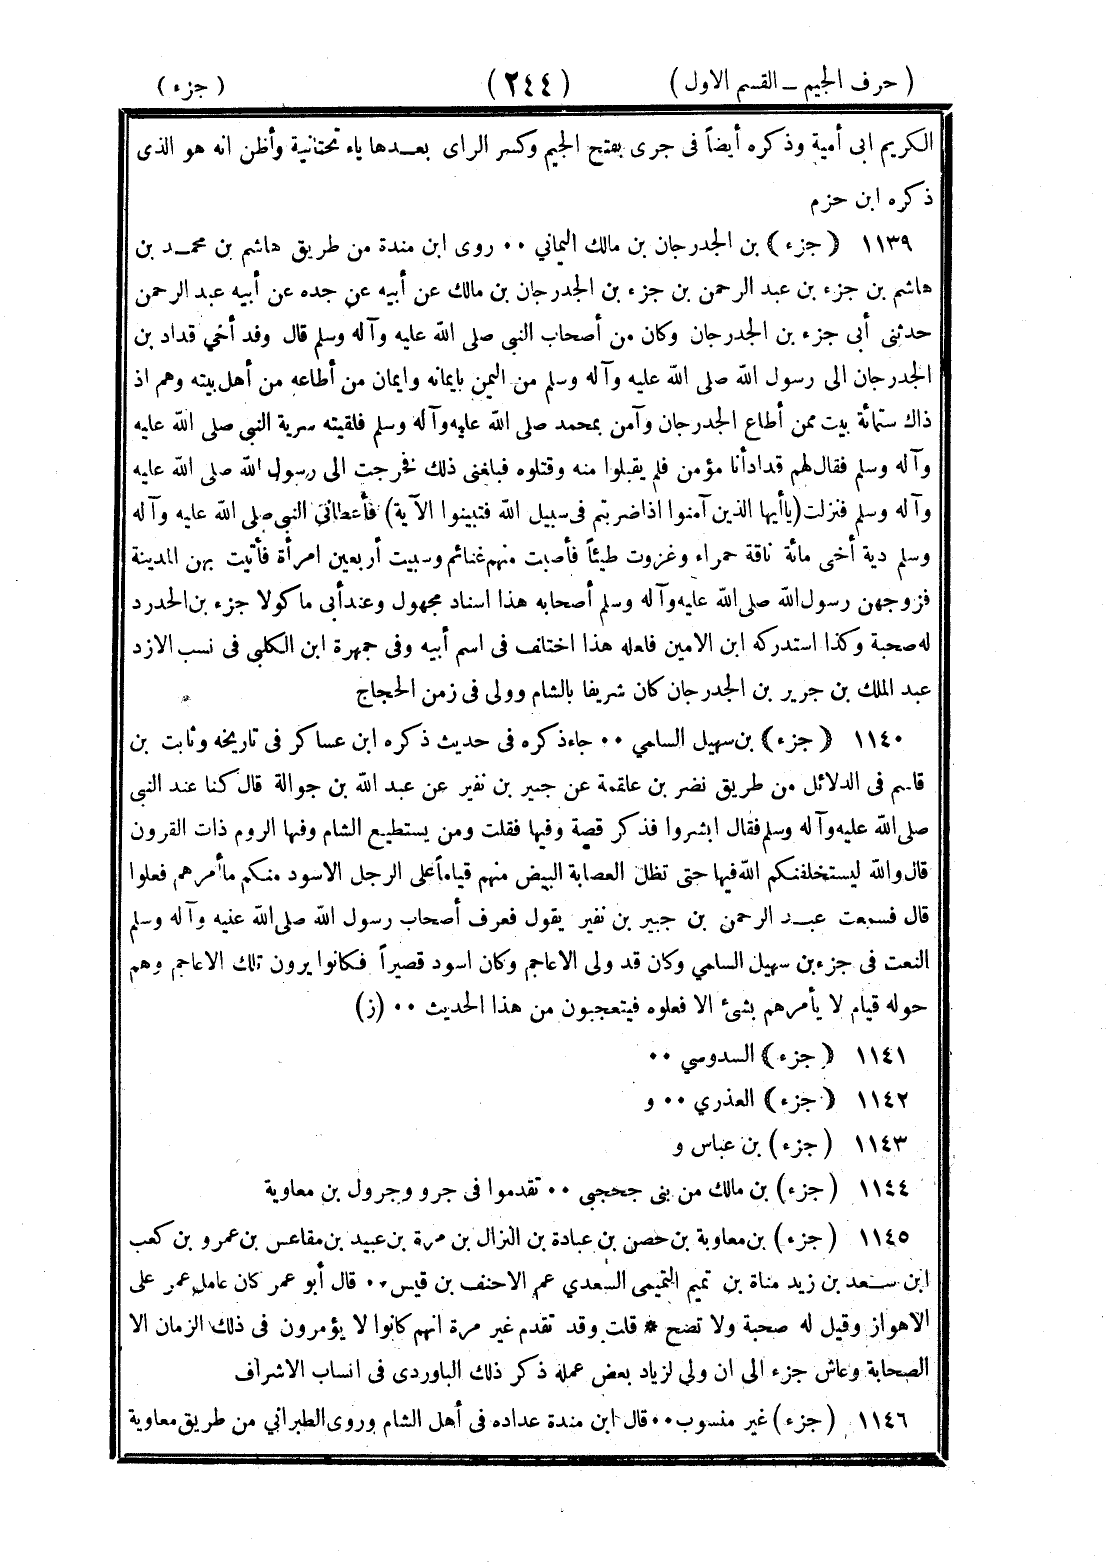 ( حرف الجيم ــ القسم الاول ) ( ٢٤٤ ) ( جزء )
الكريم ابى أمية وذكره أيضاً فى جرى بفتح الجيم وكسر الراى بعــدها ياء تحتانية وأظن انه هو الذى
ذكره ابن حزم
١١٣٩ ( جزء ) بن الجدرجان بن مالك اليماني ٠٠ روى ابن مندة من طريق هاشم بن محمــد بن
هاشم بن جزء بن عبد الرحمن بن جزء بن الجدرجان بن مالك عن أبيه عن جده عن أبيه عبد الرحمن
حدثنى أبى جزء بن الجدرجان وكان من أصحاب النبي صلى الله عليه وآله وسلم قال وفد أخي قداد بن
الجدرجان الى رسول الله صلى الله عليه وآله وسلم من اليمن بايمانه وايمان من أطاعه من أهل بيته وهم اذ
ذاك ستمائة بيت ممن أطاع الجدرجان وآمن بمحمد صلى الله عليه وآله وسلم فلقيته سرية النبي صلى الله عليه
وآله وسلم فقال لهم قداد أنا مؤمن فلم يقبلوا منه وقتلوه فبلغنى ذلك فخرجت الى رسول الله صلى الله عليه
وآله وسلم فنزلت (ياأيها الذين آمنوا اذا ضربتم فى سبيل الله فتبينوا الآية) فأعطانى النبي صلى الله عليه وآله
وسلم دية أخى مائة ناقة حمراء وغزوت طيئاً فأصبت منهم غنائم وسبيت أربعين امرأة فأتيت بهن المدينة
فزوجهن رسول الله صلى الله عليه وآله وسلم أصحابه هذا اسناد مجهول وعند أبى ماكولا جزء بن الحدرد
له صحبة وكذا استدركه ابن الامين فلعله هذا اختلف فى اسم أبيه وفى جمهرة ابن الكلبي فى نسب الازد
عبد الملك بن جرير بن الجدرجان كان شريفا بالشام وولى فى زمن الحجاج
١١٤٠ ( جزء ) بن سهيل السامي ٠٠ جاء ذكره فى حديث ذكره ابن عساكر فى تاريخه وثابت بن
قاسم فى الدلائل من طريق نضر بن علقمة عن جبير بن نفير عن عبد الله بن جوالة قال كنا عند النبى
صلى الله عليه وآله وسلم فقال ابشروا فذكر قصة وفيها فقلت ومن يستطيع الشام وفها الروم ذات القرون
قال والله ليستخلفنكم الله فيها حتى تظل العصابة البيض منهم قياماً على الرجل الاسود منكم ما أمرهم فعلوا
قال فسمعت عبــد الرحمن بن جبير بن نفير يقول فعرف أصحاب رسول الله صلى الله عليه وآله وسلم
النعت فى جزء بن سهيل السامي وكان قد ولى الاعاجم وكان اسود قصيراً فكانوا يرون تلك الاعاجم وهم
حوله قيام لا يأمرهم بشئ الا فعلوه فيتعجبون من هذا الحديث ٠٠ (ز)
١١٤١ ( جزء ) السدوسي ٠٠
١١٤٢ ( جزء ) العذري ٠٠ و
١١٤٣ ( جزء ) بن عباس و
١١٤٤ ( جزء ) بن مالك من بنى جحجبي ٠٠ تقدموا فى جرو وجرول بن معاوية
١١٤٥ ( جزء ) بن معاوية بن حصن بن عبادة بن النزال بن مرة بن عبيد بن مقاعس بن عمرو بن كعب
ابن سـعد بن زيد مناة بن تميم التميمى السعدي عم الاحنف بن قيس ٠٠ قال أبو عمر كان عامل عمر على
الاهواز وقيل له صحبة ولا تضح * قلت وقد تقدم غير مرة انهم كانوا لا يؤمرون فى ذلك الزمان الا
الصحابة وعاش جزء الى ان ولي لزياد بعض عمله ذكر ذلك الباوردى فى انساب الاشراف
١١٤٦ ( جزء ) غير منسوب ٠٠ قال ابن مندة عداده فى أهل الشام وروى الطبراني من طريق معاوية